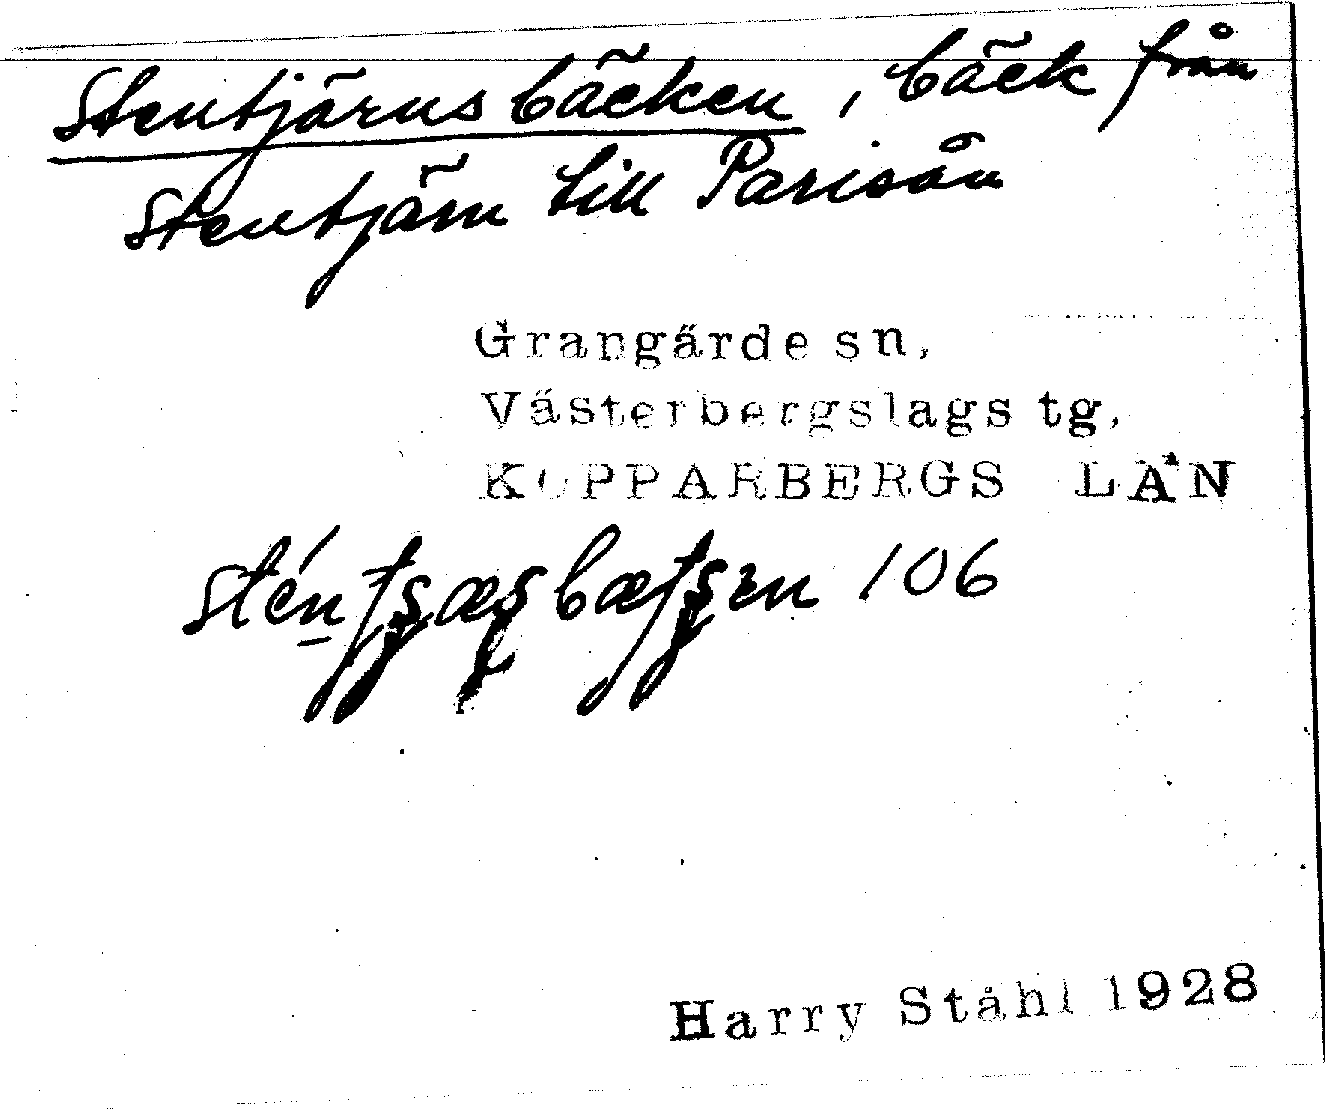 Stentjärnsbäcken, bäck från
Stentjärn till Parisån
Grangärde sn,
Västerbergslags tg,
KOPPARBERGS LÄN
106
Harry Ståhl 1928